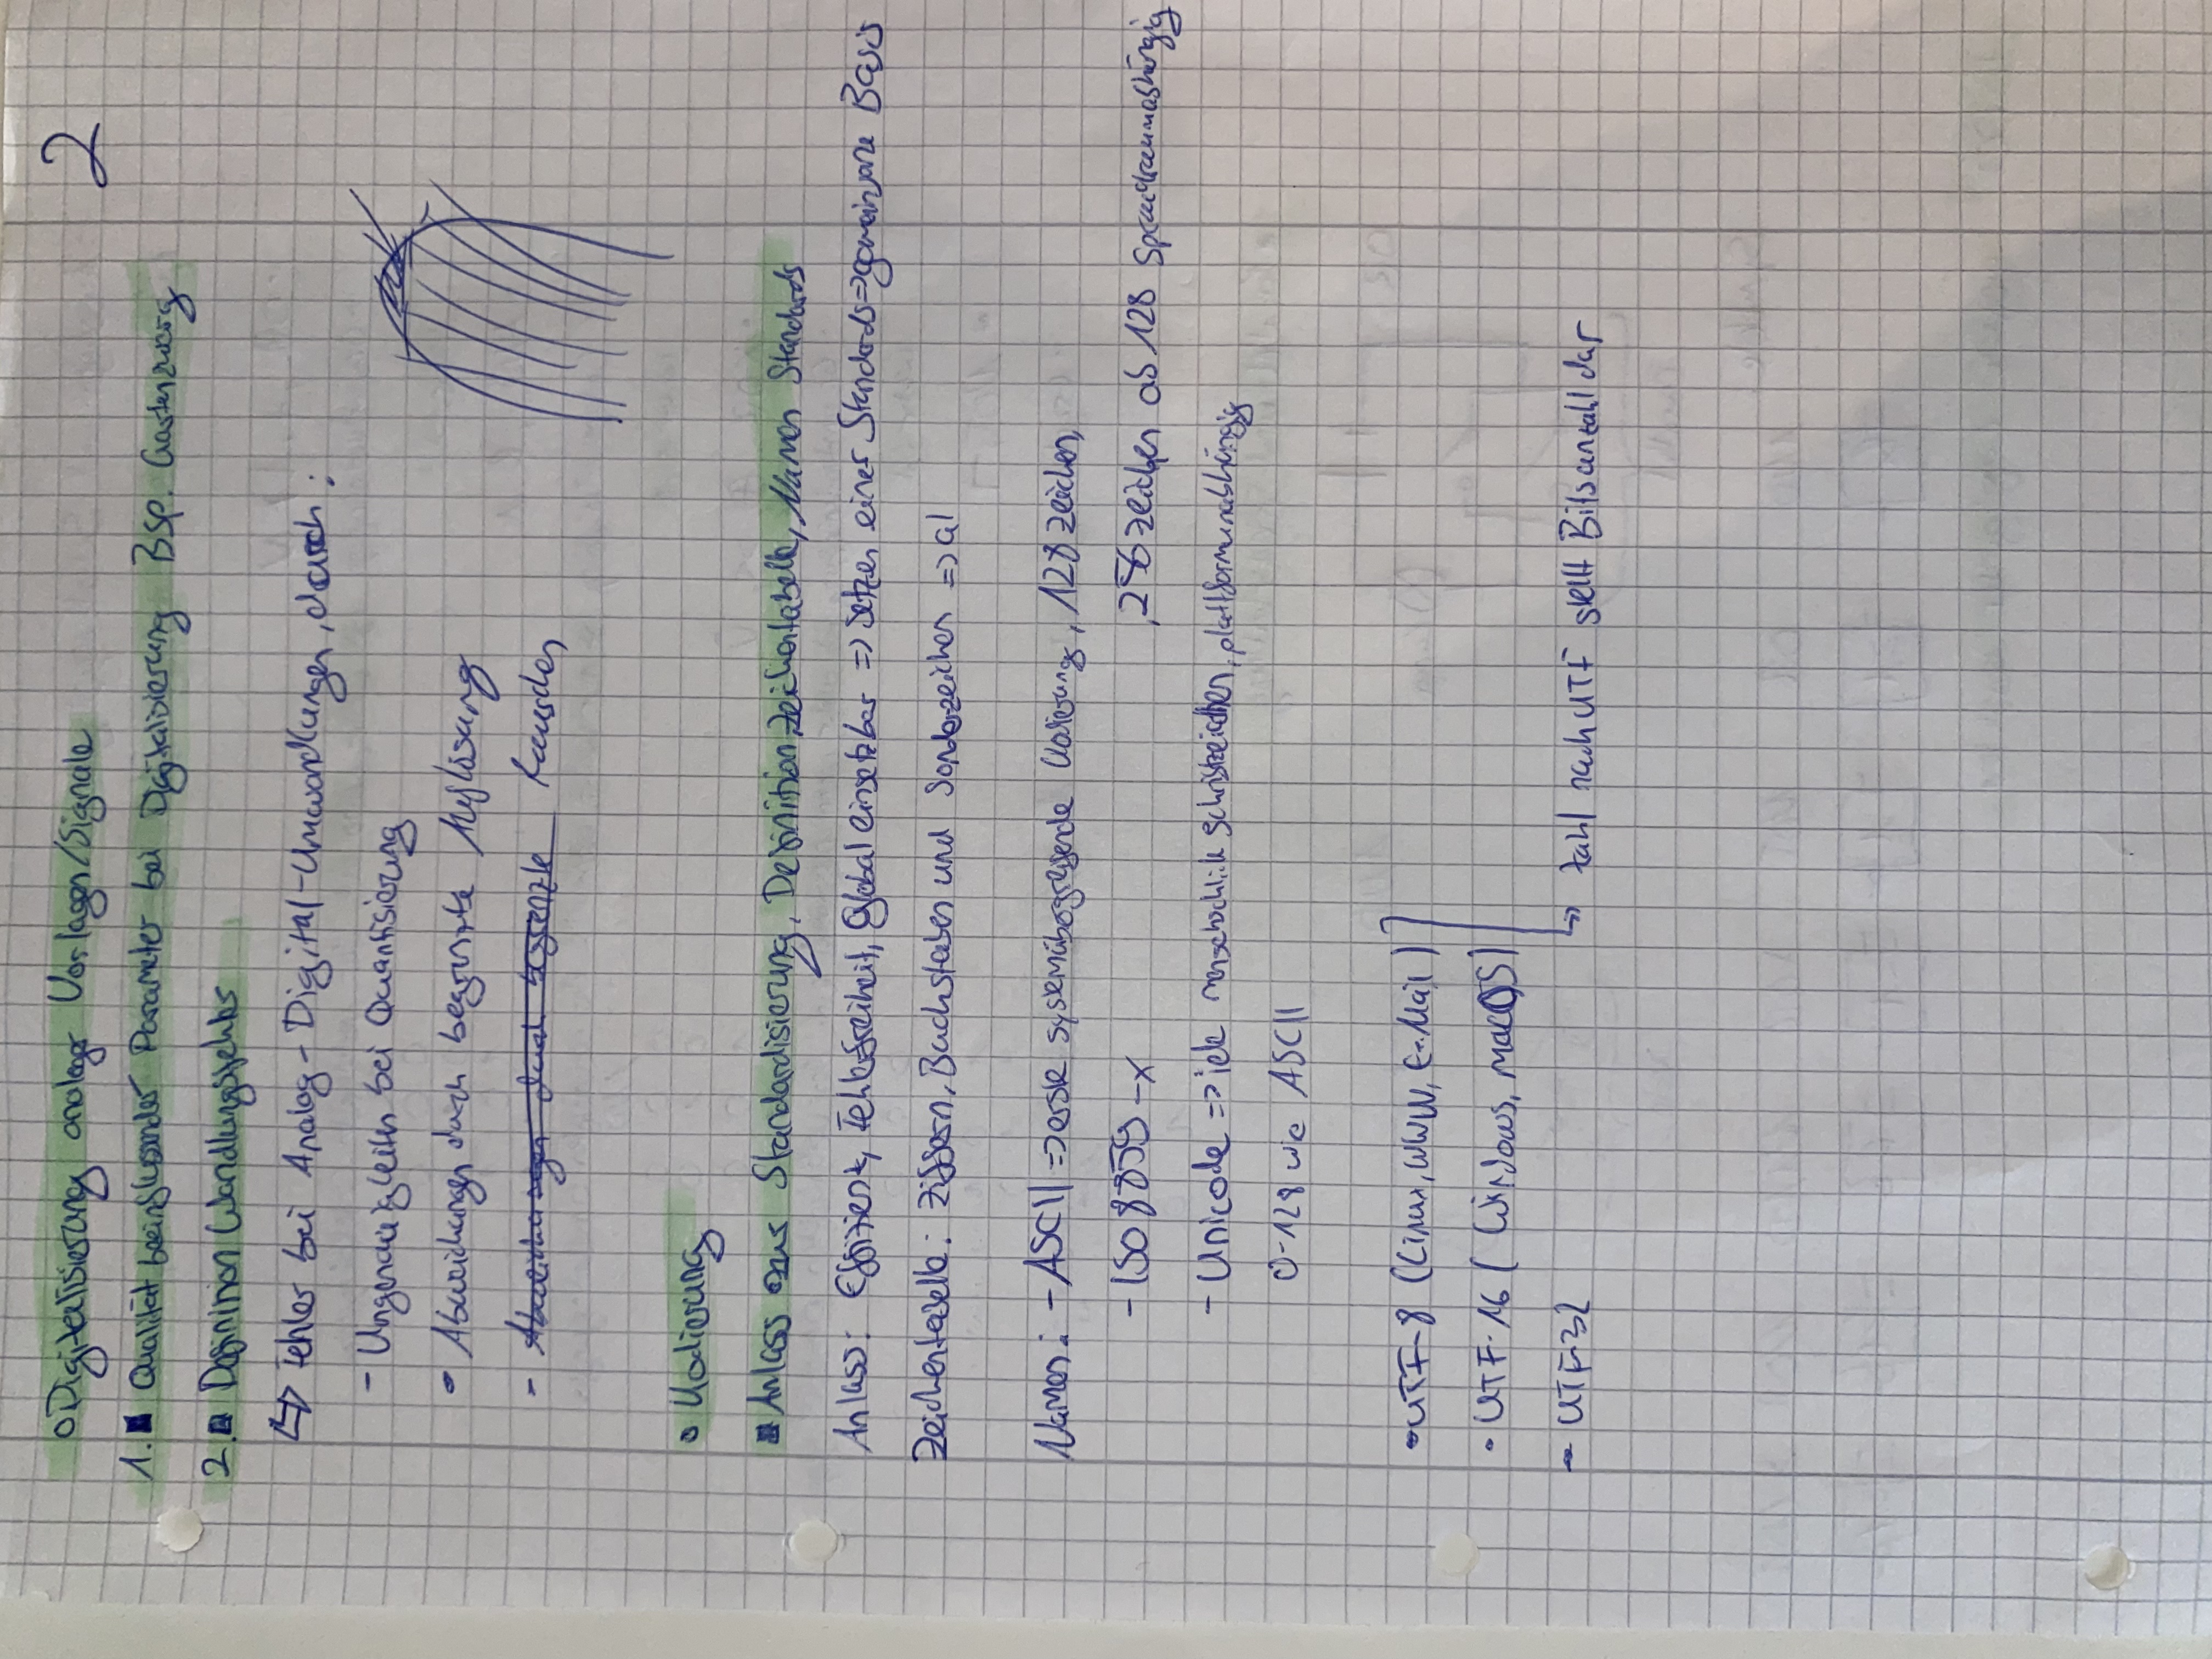 2
o Digitalisierung analoger Vorlagen/Signale
1. Qualität beeinflussender Parameter bei Digitalisierung Bsp.
2. Definition Wandlungsfehler
↳ Fehler bei Analog-Digital-Umwandlungen, durch:
- Ungenauigkeiten bei Quantisierung
• Abweichungen durch begrenzte Auflösung
- Abweichungen durch begrenzte Rauschen
• Kodierung
▪ Anlass aus Standardisierung, Definition Zeichentabelle, Namen Standards
Anlass: Effizienz, Fehlerfreiheit, Global einsetzbar => setzen einer Standards => gemeinsame Basis
Zeichentabelle: Ziffern, Buchstaben und Sonderzeichen => al
Namen: - ASCII => erste systemübergreifende Kodierung, 128 Zeichen,
- ISO 8859-x , 256 Zeichen ab 128 Sprachraumabhängig
- Unicode => jede menschliche Schriftzeichen, plattformunabhängig
0-128 wie ASCII
• UTF-8 (Linux, WWW, E-Mail)
• UTF-16 (Windows, macOS)
- UTF-32 ↳ Zahl nach UTF stellt Bitsanzahl dar